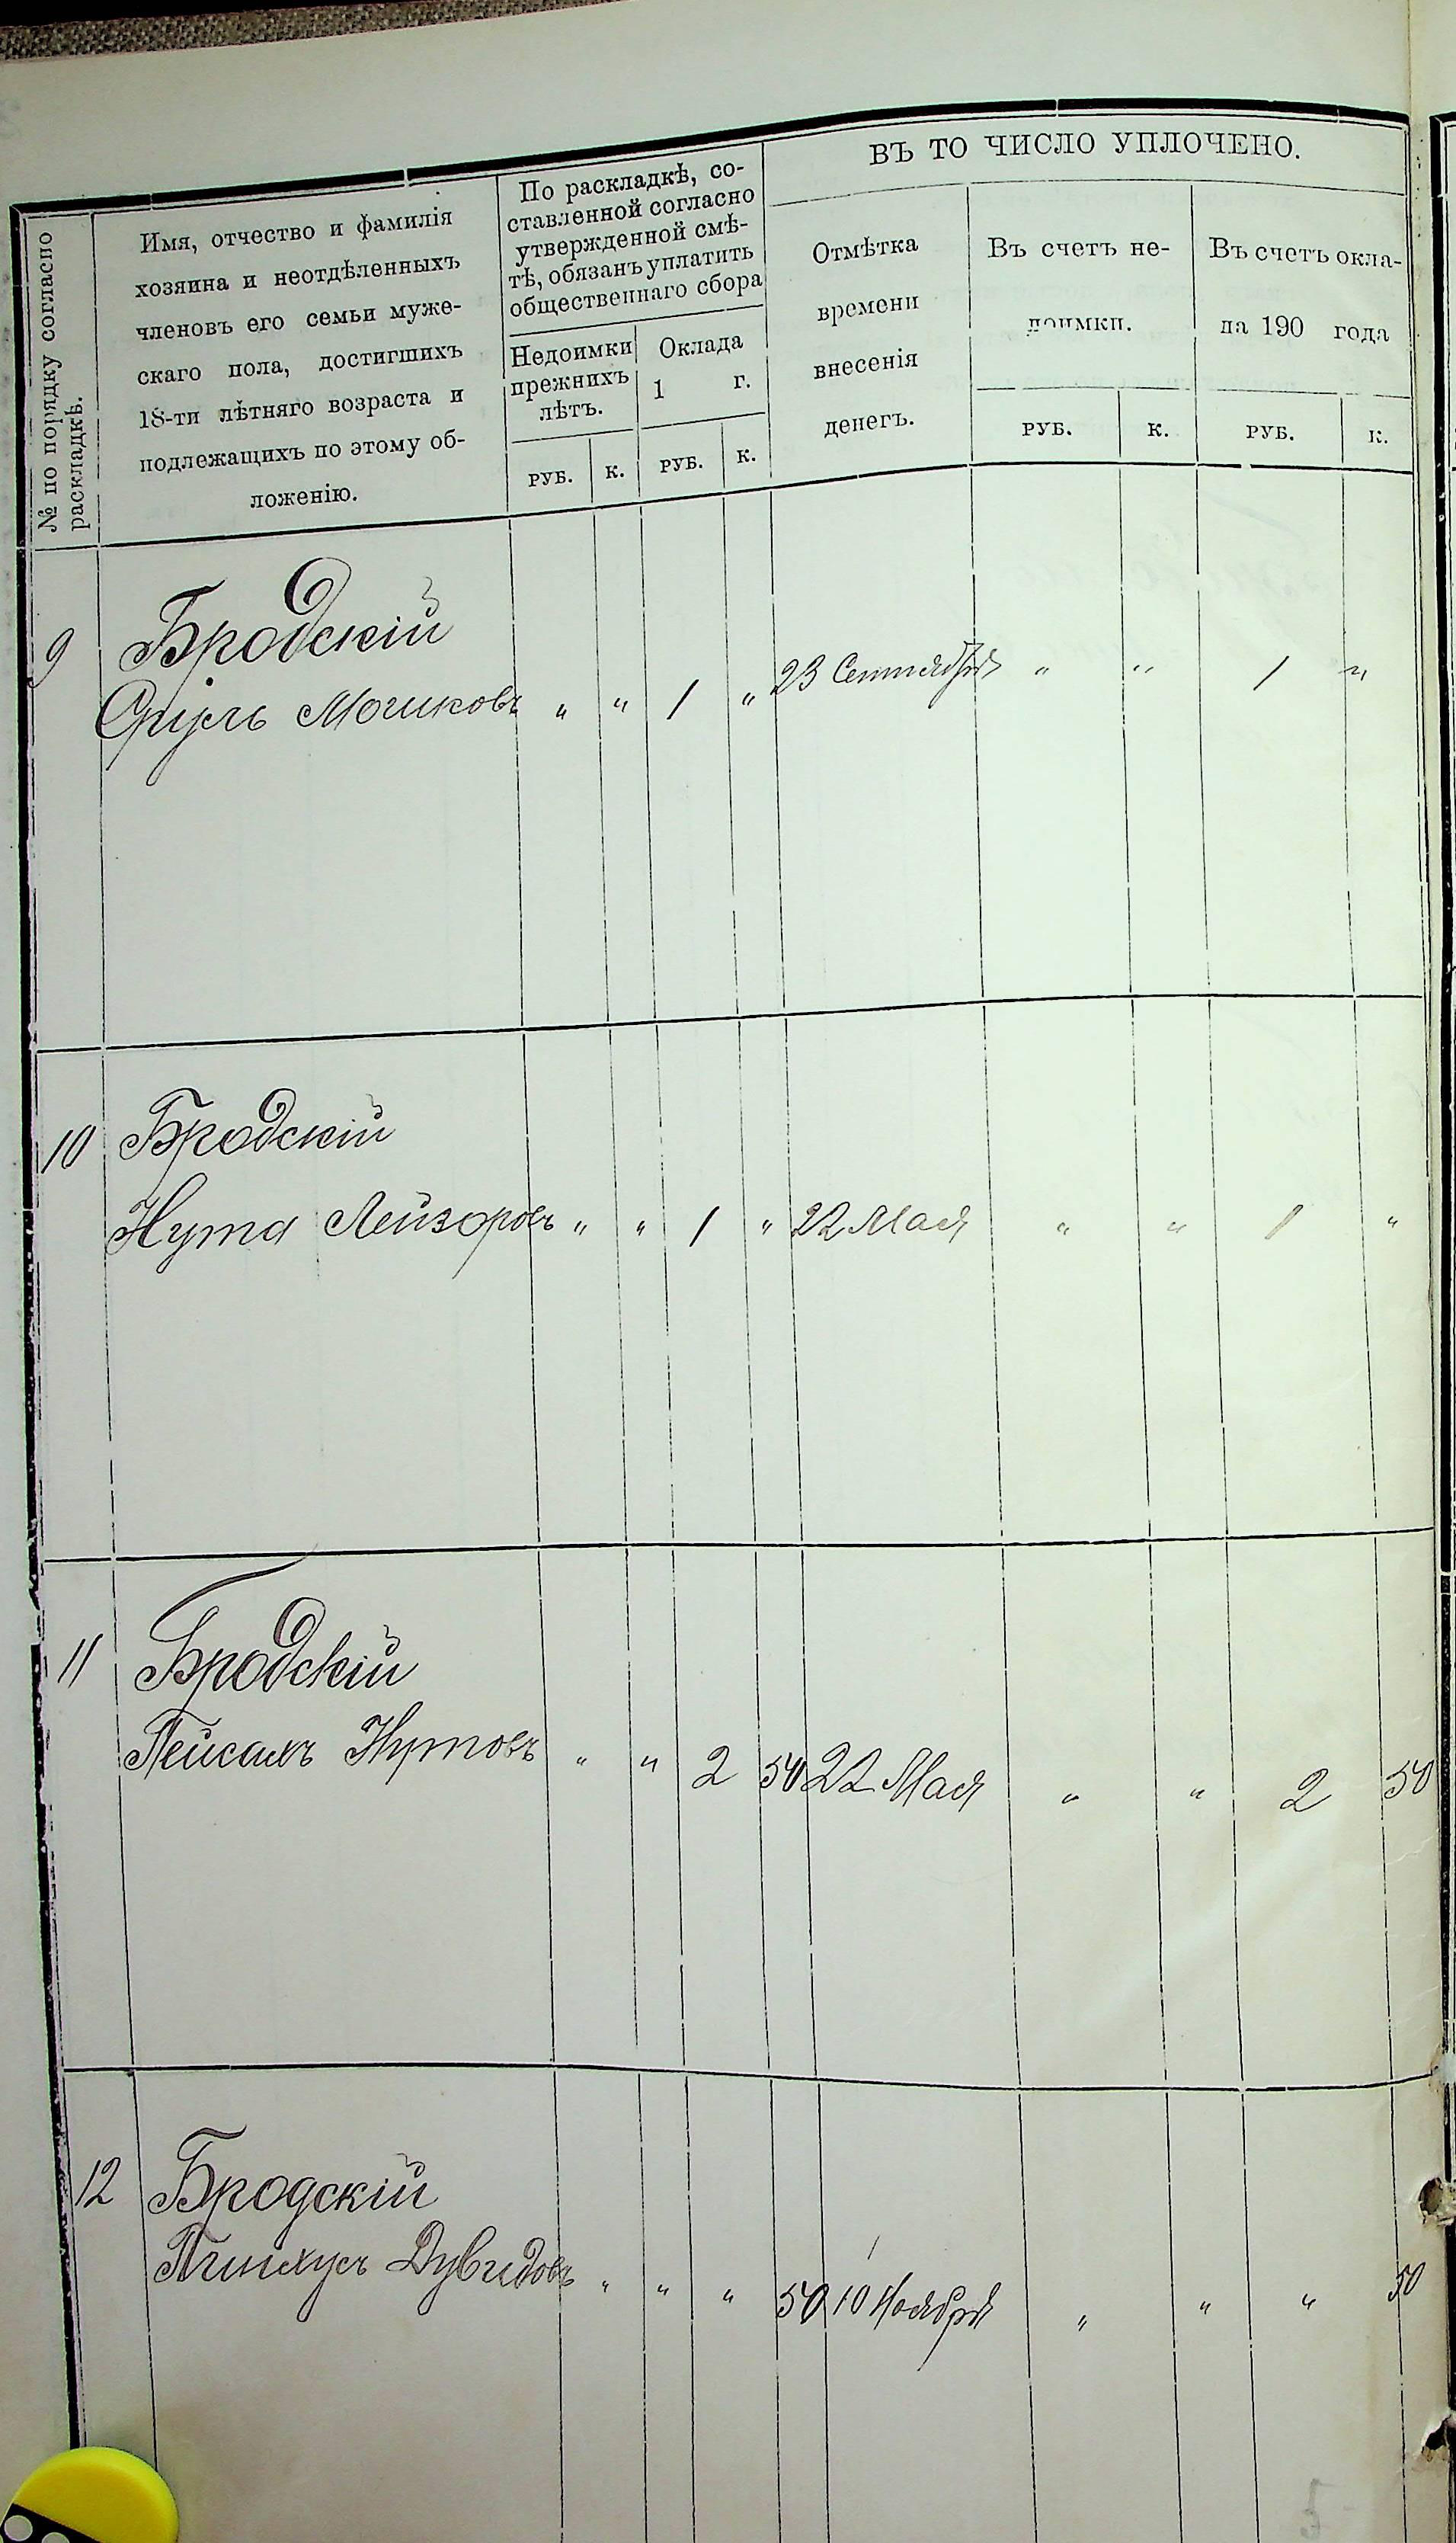 ВЪ ТО ЧИСЛО УПЛОЧЕНО.
№ по порядку согласно
раскладкѣ.
Имя, отчество и фамилія
хозяина и неотдѣленныхъ
членовъ его семьи муже-
скаго пола, достигшихъ
18-ти лѣтняго возраста и
подлежащихъ по этому об-
ложенію.
По раскладкѣ, со-
ставленной согласно
утвержденной смѣ-
тѣ, обязанъ уплатить
общественнаго сбора
Недоимки
прежнихъ
лѣтъ.
Оклада
1 г.
Отмѣтка
времени
внесенія
денегъ.
Въ счетъ не-
доимки.
Въ счетъ окла-
да 190 года
РУБ. К. РУБ. К. РУБ. К. РУБ. К.
9 Бродскій
Сруль Мошковъ " " 1 " 23 Сентября " " 1 "
10 Бродскій
Нута Лейзоровъ " " 1 " 22 Мая " " 1 "
11 Бродскій
Пейсахъ Нутовъ " " 2 50 22 Мая " " 2 50
12 Бродскій
Пинхусъ Дувидовъ " " " 50 10 Ноября " " " 50